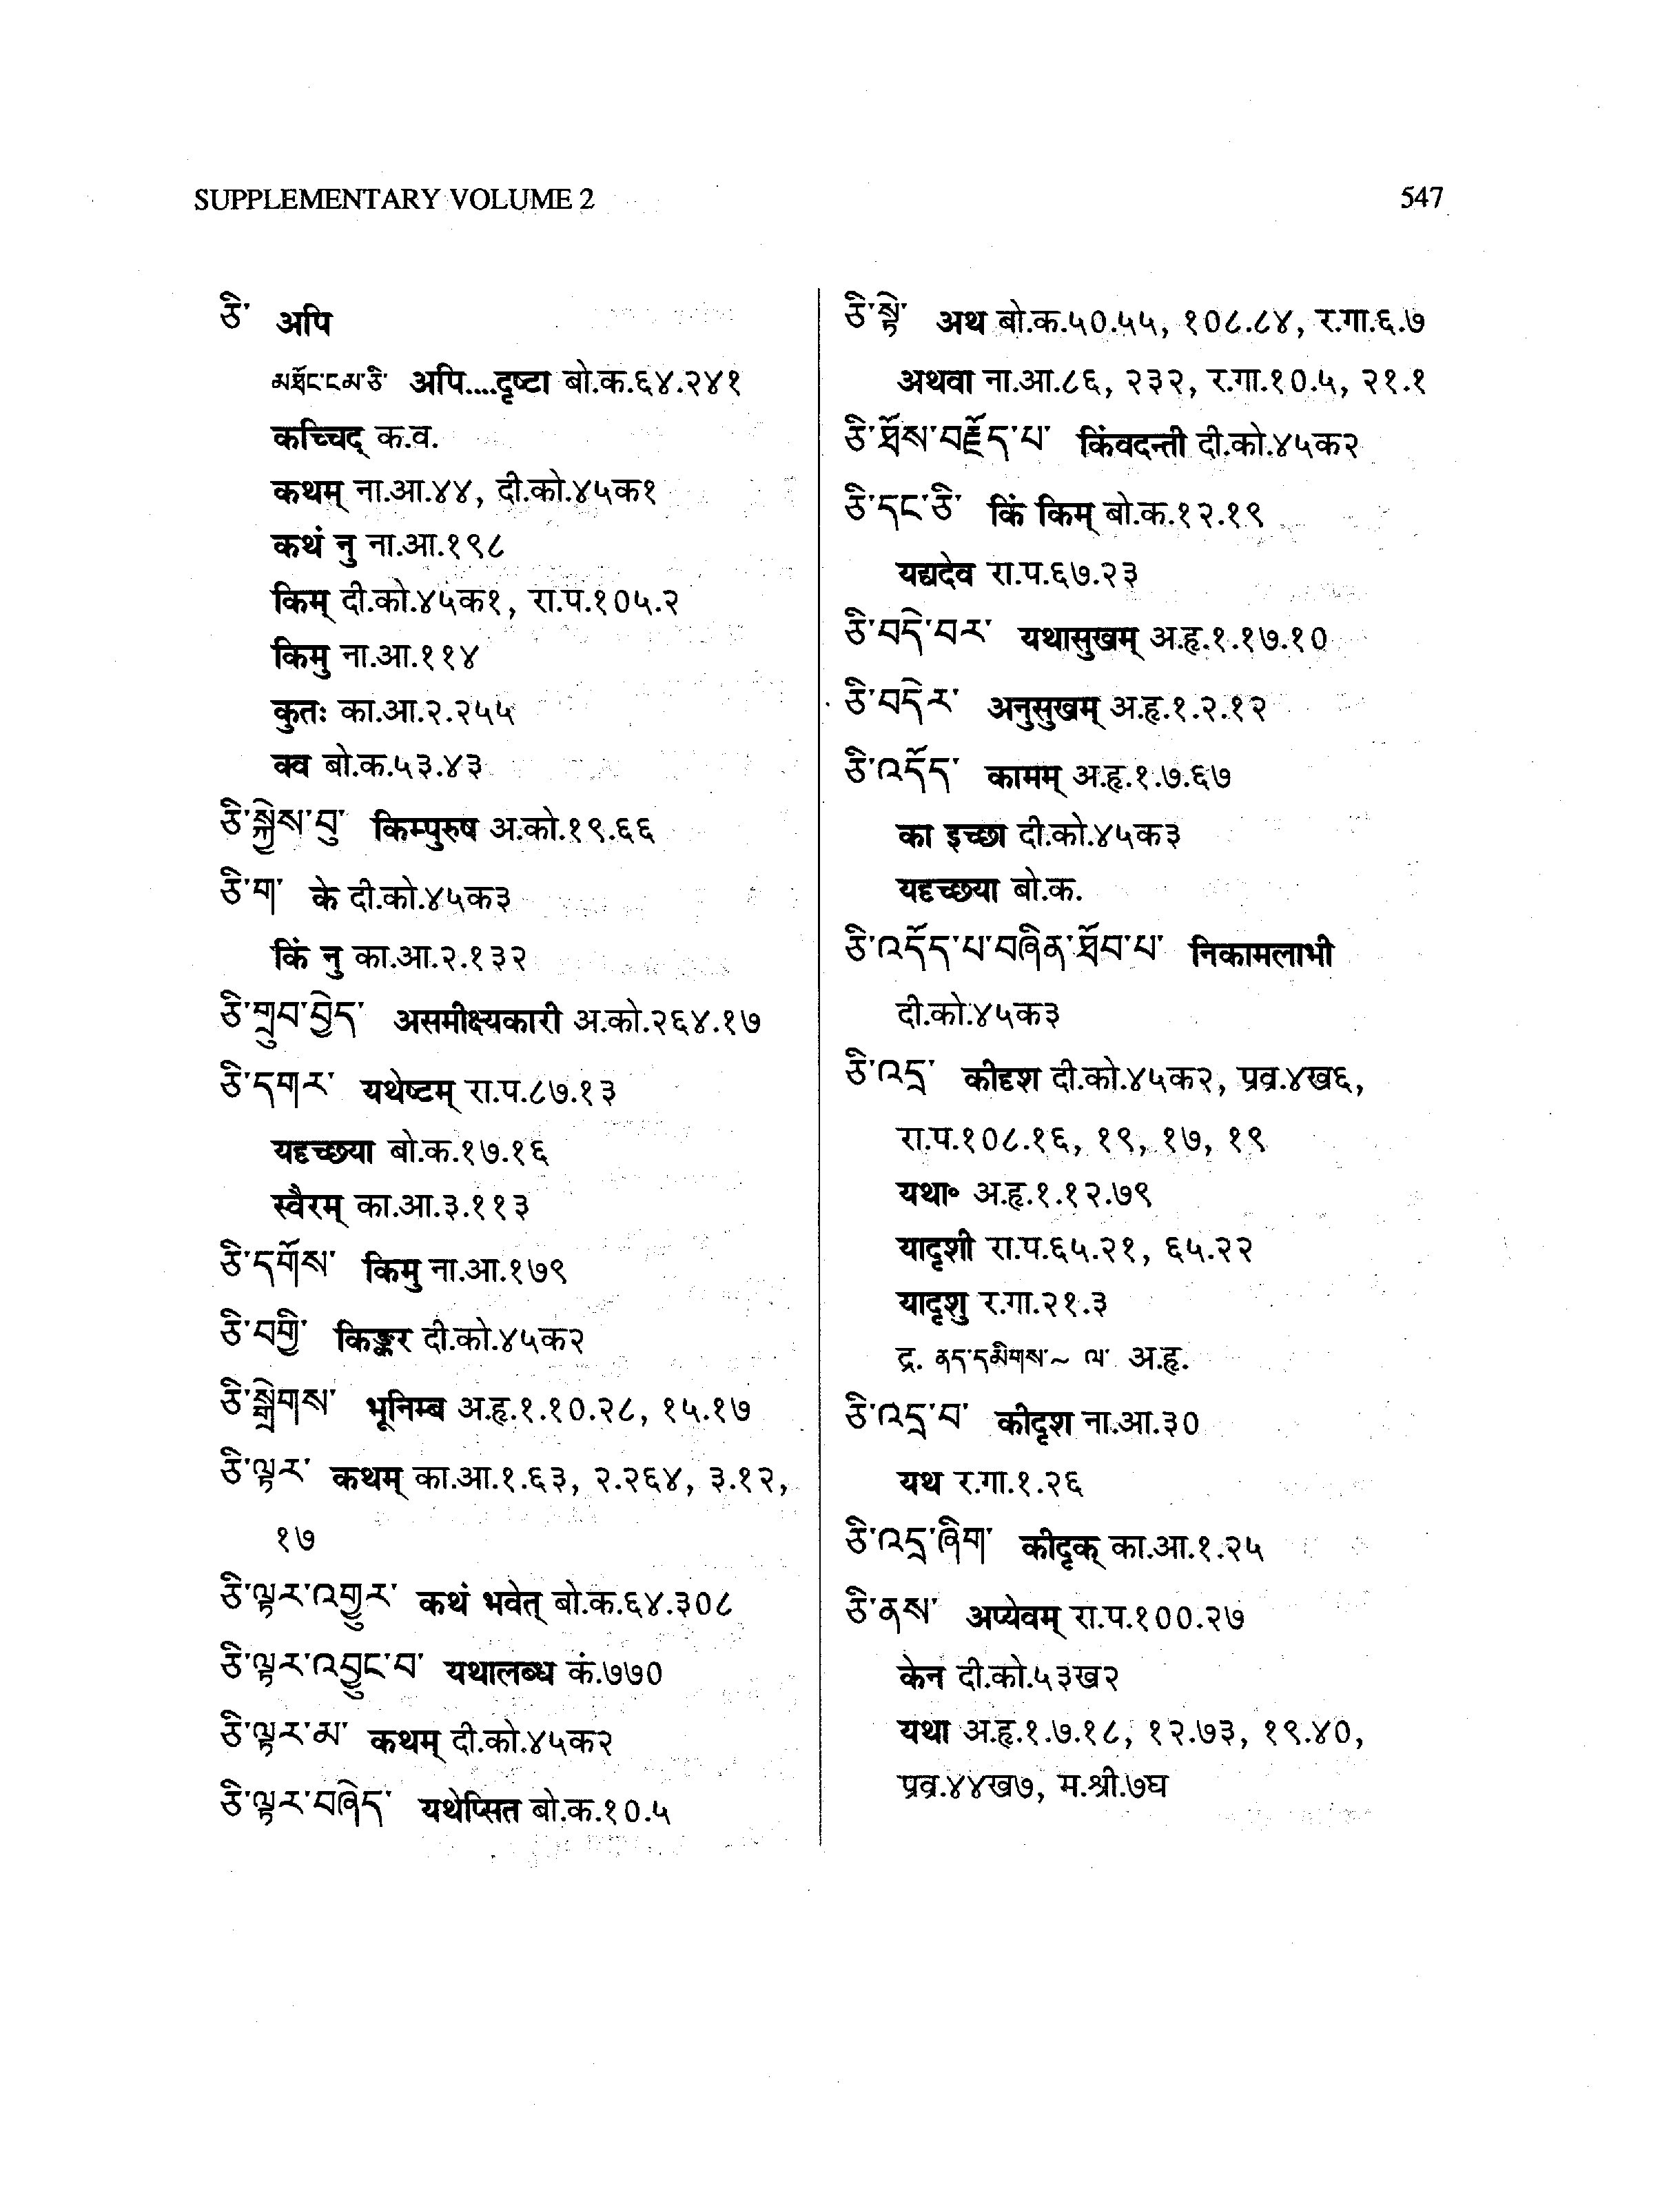 SUPPLEMENTARY VOLUME 2
547
ཅི་ अपि
མཐོང་ངམ་ཅི་ अपि....दृष्टा बो.क.६४.२४१
कच्चिद् क.व.
कथम् ना.आ.४४, दी.को.४५क१
कथं नु ना.आ.१९८
किम् दी.को.४५क१, रा.प.१०५.२
किमु ना.आ.११४
कुतः का.आ.२.२५५
क्व बो.क.५३.४३
ཅི་སྐྱེས་བུ་ किम्पुरुष अ.को.१९.६६
ཅི་ག་ के दी.को.४५क३
किं नु का.आ.२.१३२
ཅི་གྲུབ་བྱེད་ असमीक्ष्यकारी अ.को.२६४.१७
ཅི་དགར་ यथेष्टम् रा.प.८७.१३
यदृच्छया बो.क.१७.१६
स्वैरम् का.आ.३.११३
ཅི་དགོས་ किमु ना.आ.१७९
ཅི་བགྱི་ किङ्कर दी.को.४५क२
ཅི་སྒྲེགས་ भूनिम्ब अ.हृ.१.१०.२८, १५.१७
ཅི་ལྟར་ कथम् का.आ.१.६३, २.२६४, ३.१२,
१७
ཅི་ལྟར་འགྱུར་ कथं भवेत् बो.क.६४.३०८
ཅི་ལྟར་འབྱུང་བ་ यथालब्ध कं.७७०
ཅི་ལྟར་མ་ कथम् दी.को.४५क२
ཅི་ལྟར་བཞེད་ यथेप्सित बो.क.१०.५
ཅི་སྟེ་ अथ बो.क.५०.५५, १०८.८४, र.गा.६.७
अथवा ना.आ.८६, २३२, र.गा.१०.५, २१.१
ཅི་ཐོས་བརྗོད་པ་ किंवदन्ती दी.को.४५क२
ཅི་དང་ཅི་ किं किम् बो.क.१२.१९
यद्यदेव रा.प.६७.२३
ཅི་བདེ་བར་ यथासुखम् अ.हृ.१.१७.१०
ཅི་བདེར་ अनुसुखम् अ.हृ.१.२.१२
ཅི་འདོད་ कामम् अ.हृ.१.७.६७
का इच्छा दी.को.४५क३
यदृच्छया बो.क.
ཅི་འདོད་པ་བཞིན་ཐོབ་པ་ निकामलाभी
दी.को.४५क३
ཅི་འདྲ་ कीदृश दी.को.४५क२, प्रव्र.४ख६,
रा.प.१०८.१६, १९, १७, १९
यथा॰ अ.हृ.१.१२.७९
यादृशी रा.प.६५.२१, ६५.२२
यादृशु र.गा.२१.३
द्र. ནད་དམིགས་~ ལ་ अ.हृ.
ཅི་འདྲ་བ་ कीदृश ना.आ.३०
यथ र.गा.१.२६
ཅི་འདྲ་ཞིག་ कीदृक् का.आ.१.२५
ཅི་ནས་ अप्येवम् रा.प.१००.२७
केन दी.को.५३ख२
यथा अ.हृ.१.७.१८, १२.७३, १९.४०,
प्रव्र.४४ख७, म.श्री.७घ